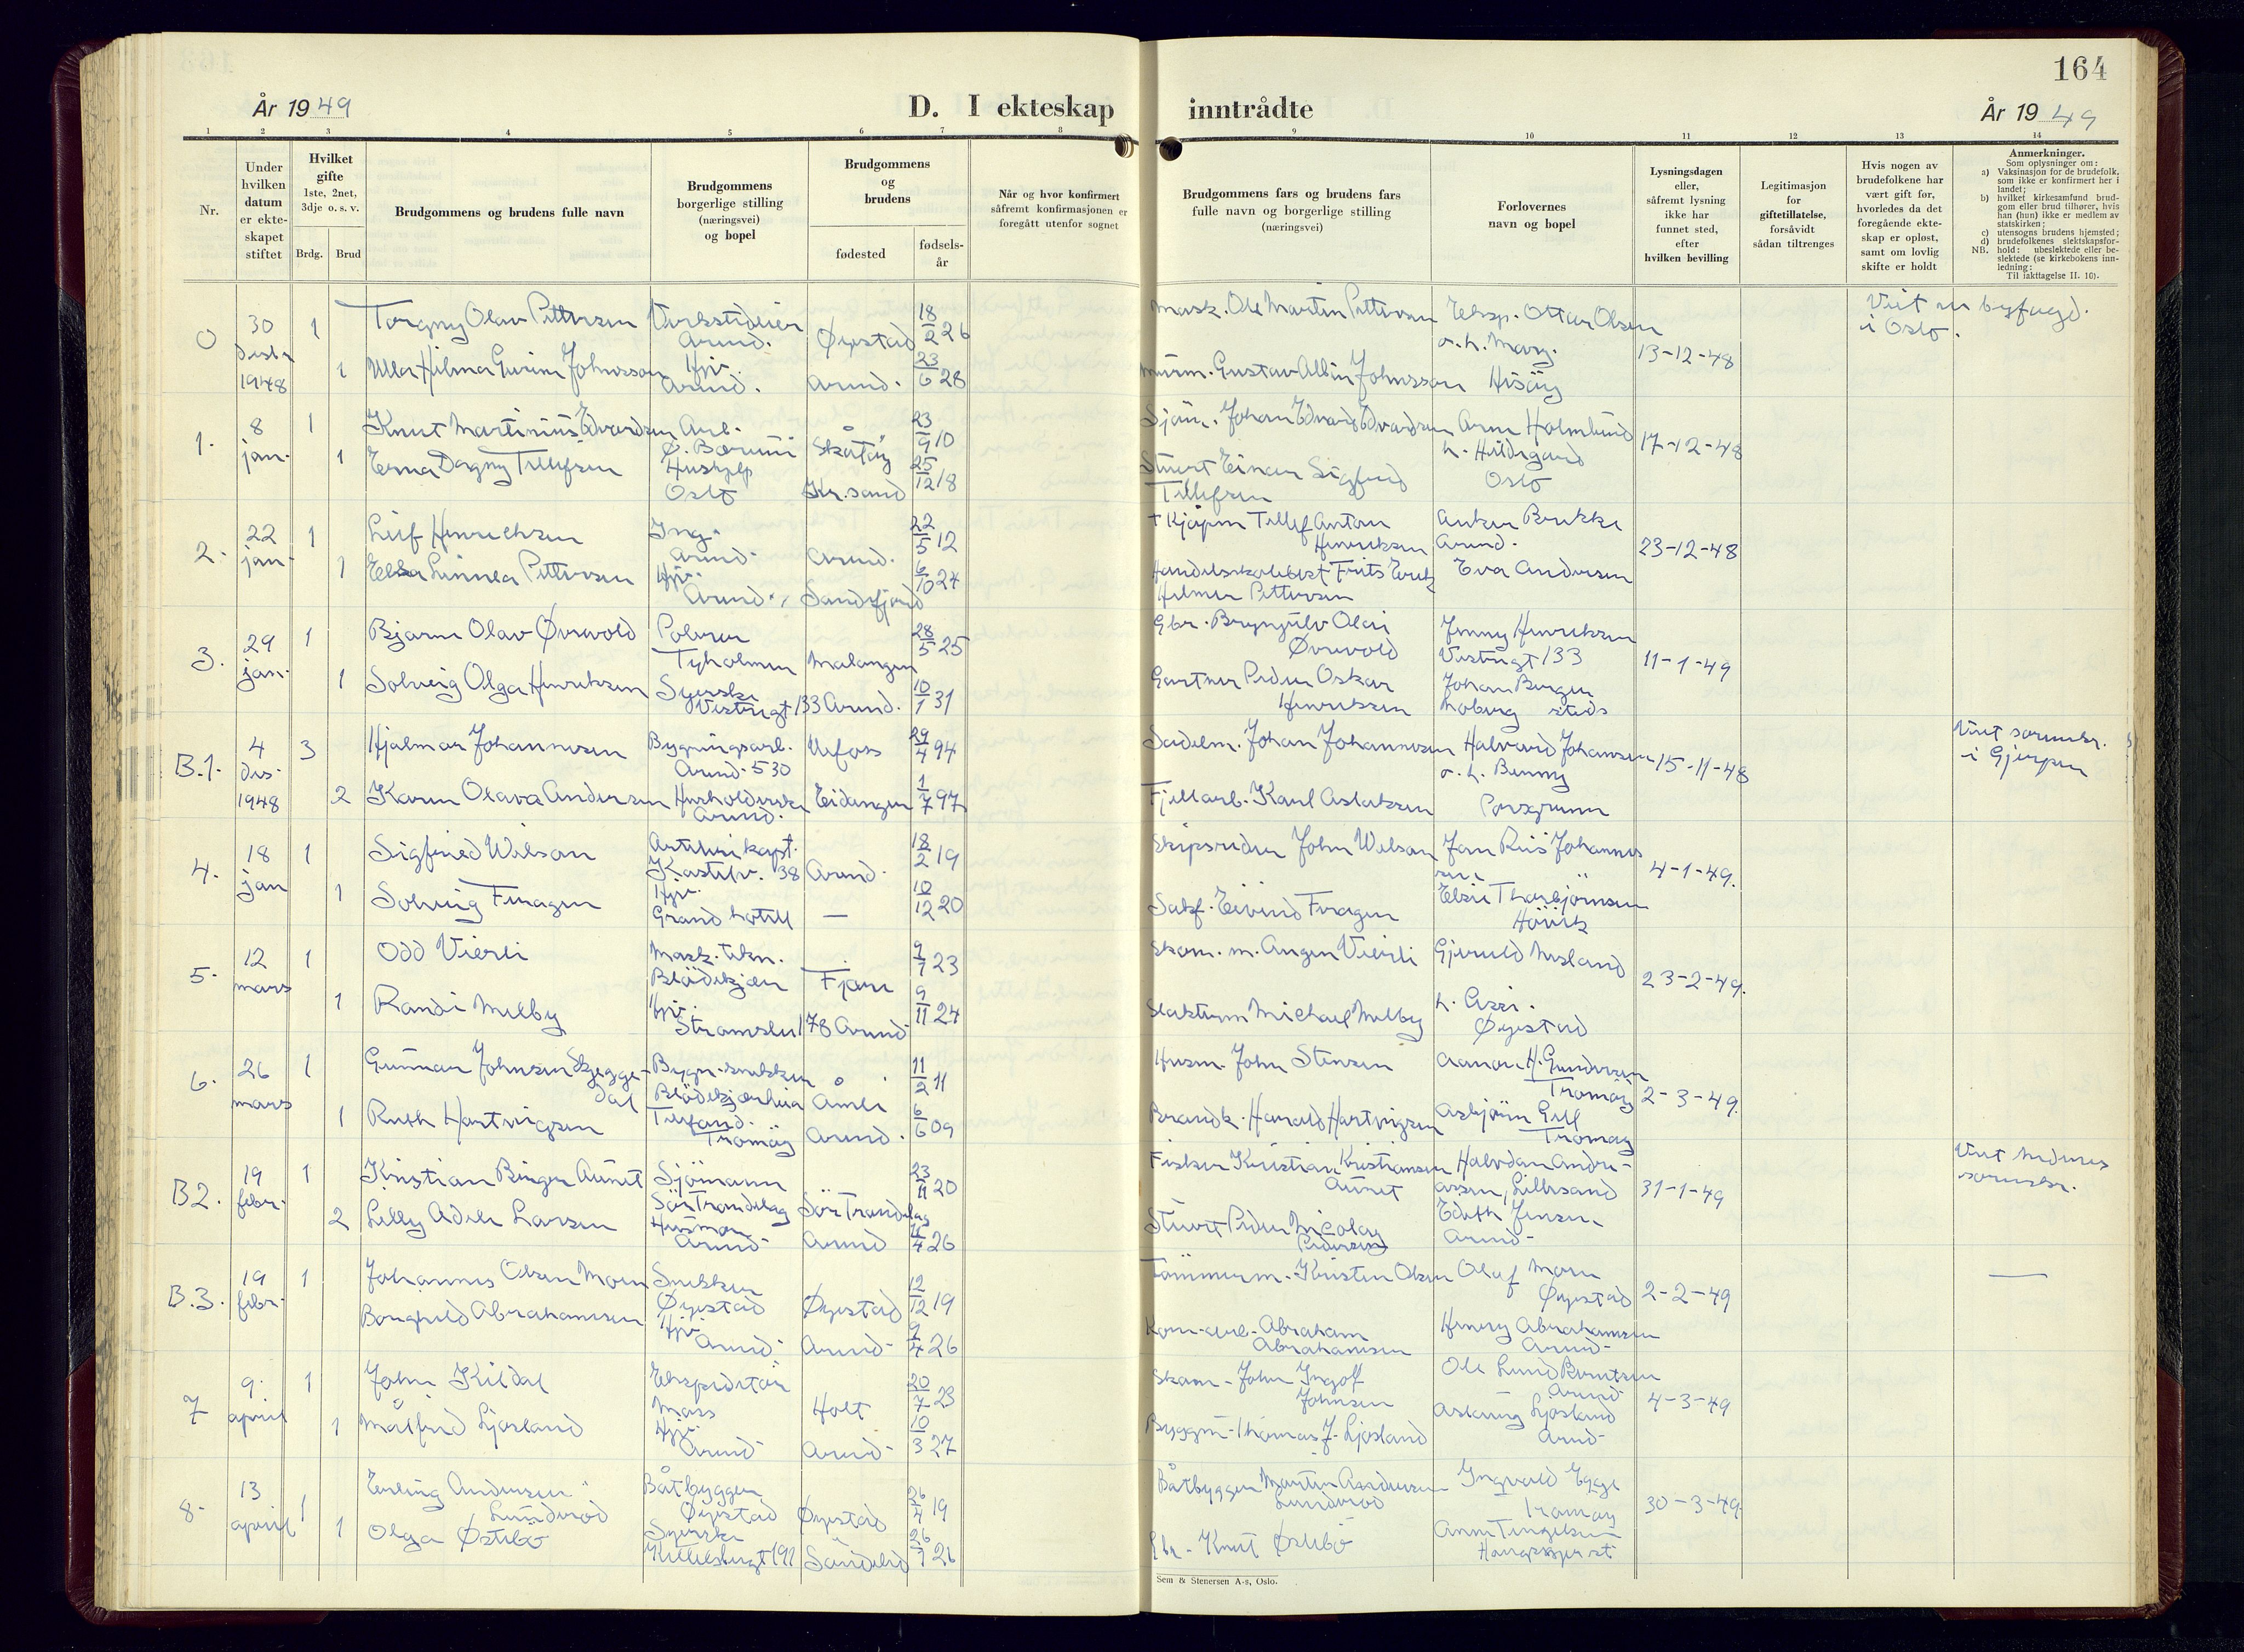 164
År 1949
D. I ekteskap inntrådte
År 1949
1 2 3 4 5 6 7 8 9 10 11 12 13 14
Nr.
Under hvilken datum er ekte-skapet stiftet
Hvilket gifte
1ste, 2net, 3dje o. s. v.
Brdg. Brud
Brudgommens og brudens fulle navn
Brudgommens borgerlige stilling (næringsvei) og bopel
Brudgommens og brudens
fødested
fødsels-år
Når og hvor konfirmert såfremt konfirmasjonen er foregått utenfor sognet
Brudgommens fars og brudens fars fulle navn og borgerlige stilling (næringsvei)
Forlovernes navn og bopel
Lysningsdagen eller, såfremt lysning ikke har funnet sted, efter hvilken bevilling
Legitimasjon for giftetillatelse, forsåvidt sådan tiltrenges
Hvis nogen av brudefolkene har vært gift før, hvorledes da det foregående ekte-skap er opløst, samt om lovlig skifte er holdt
Anmerkninger.
Som oplysning om:
a) Vaksinasjon for de brudefolk, som ikke er konfirmert her i landet;
b) hvilket kirkesamfund brud-gom eller brud tilhører, hvis han (hun) ikke er medlem av statskirken;
c) utensogns brudens hjemsted;
d) brudefolkenes slektskapsfor-hold: ubeslektede eller be-slektede (se kirkebokens inn-ledning:
NB.
Til iakttagelse II. 10).
0 30 desbr 1948 1 Torgny Olav Pettersen Verkstedeier Arend. Øyestad 18/2 26 Mask. Ole Martin Pettersen Eksp. Ottar Olsen o. h. Marg. Hisöy 13-12-48 Viet av byfogd. i Oslo.
1 Ulla Hilma Gunim Johnsson Hjv. Arend. Arend. 23/6 28 murm. Gustav Albin Johnsson
1. 8 jan. 1 Knut Martinius Edvardsen Arb. Ø. Bærum Skåtöy 23/9 10 Sjöm. Johan Edvard Edvardsen Arne Holmlund h. Hildegard Oslo 17-12-48
1 Erna Dagny Tellefsen Hushjelp Oslo Kr.sand 25/12 18 Stuert Einar Sigfred Tellefsen
2. 22 jan. 1 Leif Henriksen Ing. Arend. Arend. 22/5 12 + Kjöpm Tellef Anton Henriksen Anker Brekke Arend. 23-12-48
1 Ebba Linnea Pettersen Hjv. Arend. Sandefjord 6/10 24 Handelsskolebest Frits Erik Helmer Pettersen Eva Andersen
3. 29 jan. 1 Bjarne Olav Øvrevold Polerer Tyholmen Malangen 28/5 25 Gbr. Brynjulv Olai Øvrevold Jenny Henriksen Vestregt 133 11-1-49
1 Solveig Olga Henriksen Syerske Vestregt 133 Arend. 10/1 31 Gartner Peder Oskar Henriksen Johan Bergen Moberg steds
B.1. 4 des. 1948 3 Hjalmar Johannesen Bygningsarb. Arend. 530 Ulefoss 29/4 94 Sadelm. Johan Johannesen Halvard Johansen o. h. Benny Porsgrunn 15-11-48 Viet sorenskr. i Gjerpen
2 Karen Olava Andersen Husholderske Arend. Eidanger 1/7 97 Fjellarb. Karl Aslaksen
4. 18 jan 1 Sigfred Wilson Artillerikapt. Kastelv. 38 Arend. 18/2 19 Skipsreder John Wilson Jan Riis Johannessen 4-1-49.
1 Solveig Furagen Hjv. Grand hotell — 10/12 20 Salsf. Eivind Fragen Elsie Thorbjörnsen Hövik
5. 12 mars 1 Odd Vierli Mask. tekn. Blödekjær Fjære 9/7 23 Skom. m. Angen Vierli Gjeruld Mesland 23-2-49.
1 Randi Melby Hjv. Strömsbu 178 Arend. 9/11 24 Slakterm Michael Melby h. Assi. Øyestad
6. 26 mars 1 Gunnar Johnsen Skjeggedal Bygn.snekker Blödekjærheia Åmli 11/2 11 Husm. John Stensen Aanon H. Gundersen Tromöy 2-3-49.
1 Ruth Hartvigsen Telefond. Tromöy Arend. 6/6 09 Brandk. Harald Hartvigsen Asbjörn Gill Tromöy
B2. 19 febr. 1 Kristian Ringen Aunet Sjömann Sör Tröndelag Sör Tröndelag 23/11 20 Fisker Kristian Kristiansen Aunet Halvdan Andreassen, Lillesand 31-1-49 Viet Nedenes sorenskr.
2 Lilly Adele Larsen Husmor Arend. Arend 16/4 26 Stuert Peder Nicolay Pedersen Edith Jensen Arend.
B.3. 19 febr. 1 Johannes Olsen Moen Snekker Øyestad Øyestad 12/12 19 Tömmerm. Kristen Olsen Olaf Moen Øyestad 2-2-49 —
Borghild Abrahamsen Hjv. Arend. Arend. 9/4 26 Kom.arb. Abraham Abrahamsen Henry Abrahamsen Arend.
7 9. april 1 John Kildal Ekspeditör Moss Holt 20/7 23 Skom. John Ingolf Johnsen Ole Lund Berntsen Arend. 4-3-49
1 Målfrid Ljosland Hjv. Arend. Arend. 10/3 27 Byggm. Thomas J. Ljosland Aslaug Ljosland Arend.
8. 13 april 1 Erling Andersen Lunderöd Båtbygger Øyestad Øyestad 26/4 19 Båtbygger Martin Andersen Lunderöd Ingvald Egge Tromöy 30-3-49
1 Olga Østebö Syerske Kittelsbugt 191 Söndeled 26/7 26 Gbr. Knut Østebö Anne Tengelsen
Sem & Stenersen A-s, Oslo.